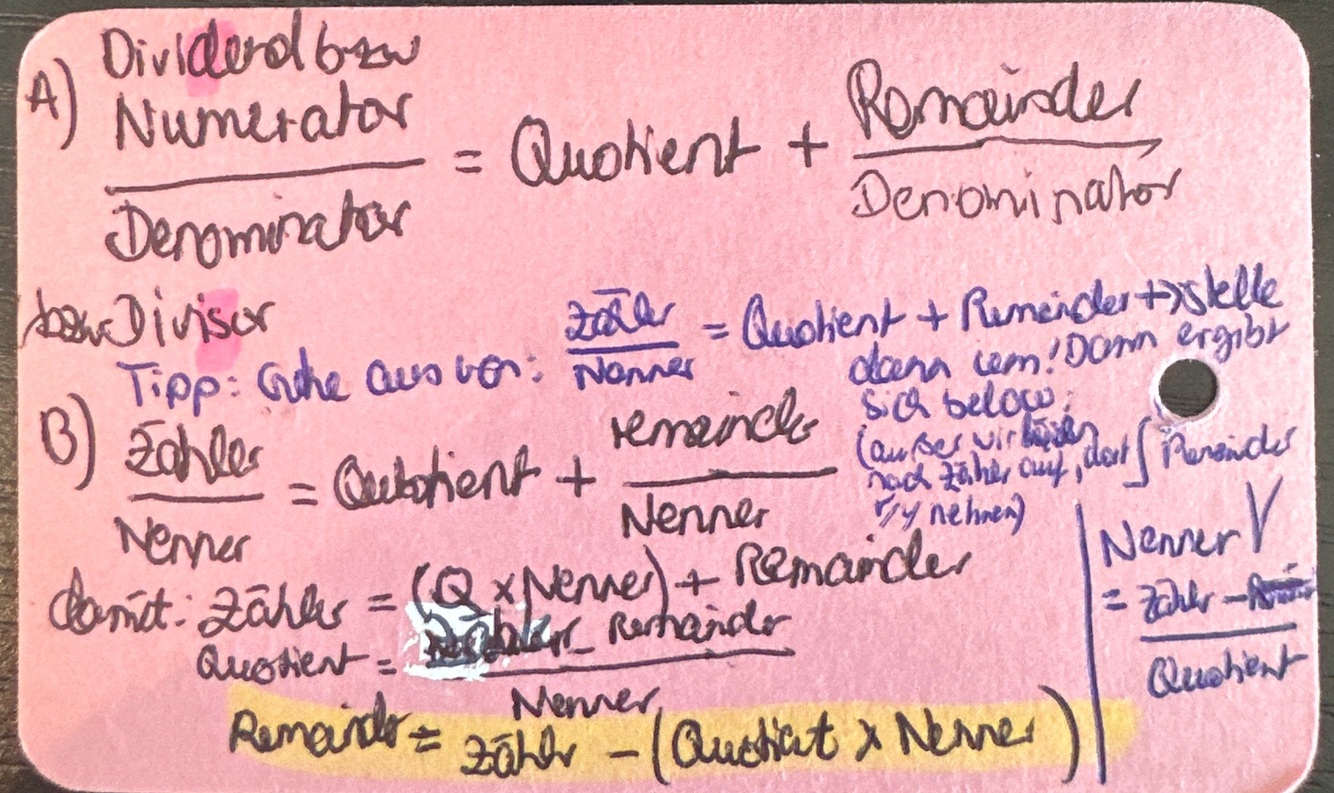 A) Dividend bzw
Numerator
Denominator
= Quotient + Remainder
Denominator
bzw Divisor
Tipp: Gehe aus von: Zähler
Nenner
= Quotient + Remainder → stelle
dann um! Dann ergibt
sich below:
(außer wir lösen
nach Zähler auf, dort
r/y nehmen)
Remainder
B) Zähler
Nenner
= Quotient + remainder
Nenner
damit: Zähler = (Q x Nenner) + Remainder
Quotient = Zähler - Remainder
Nenner
Remainder = Zähler - (Quotient x Nenner)
Nenner
= Zähler - 
Quotient